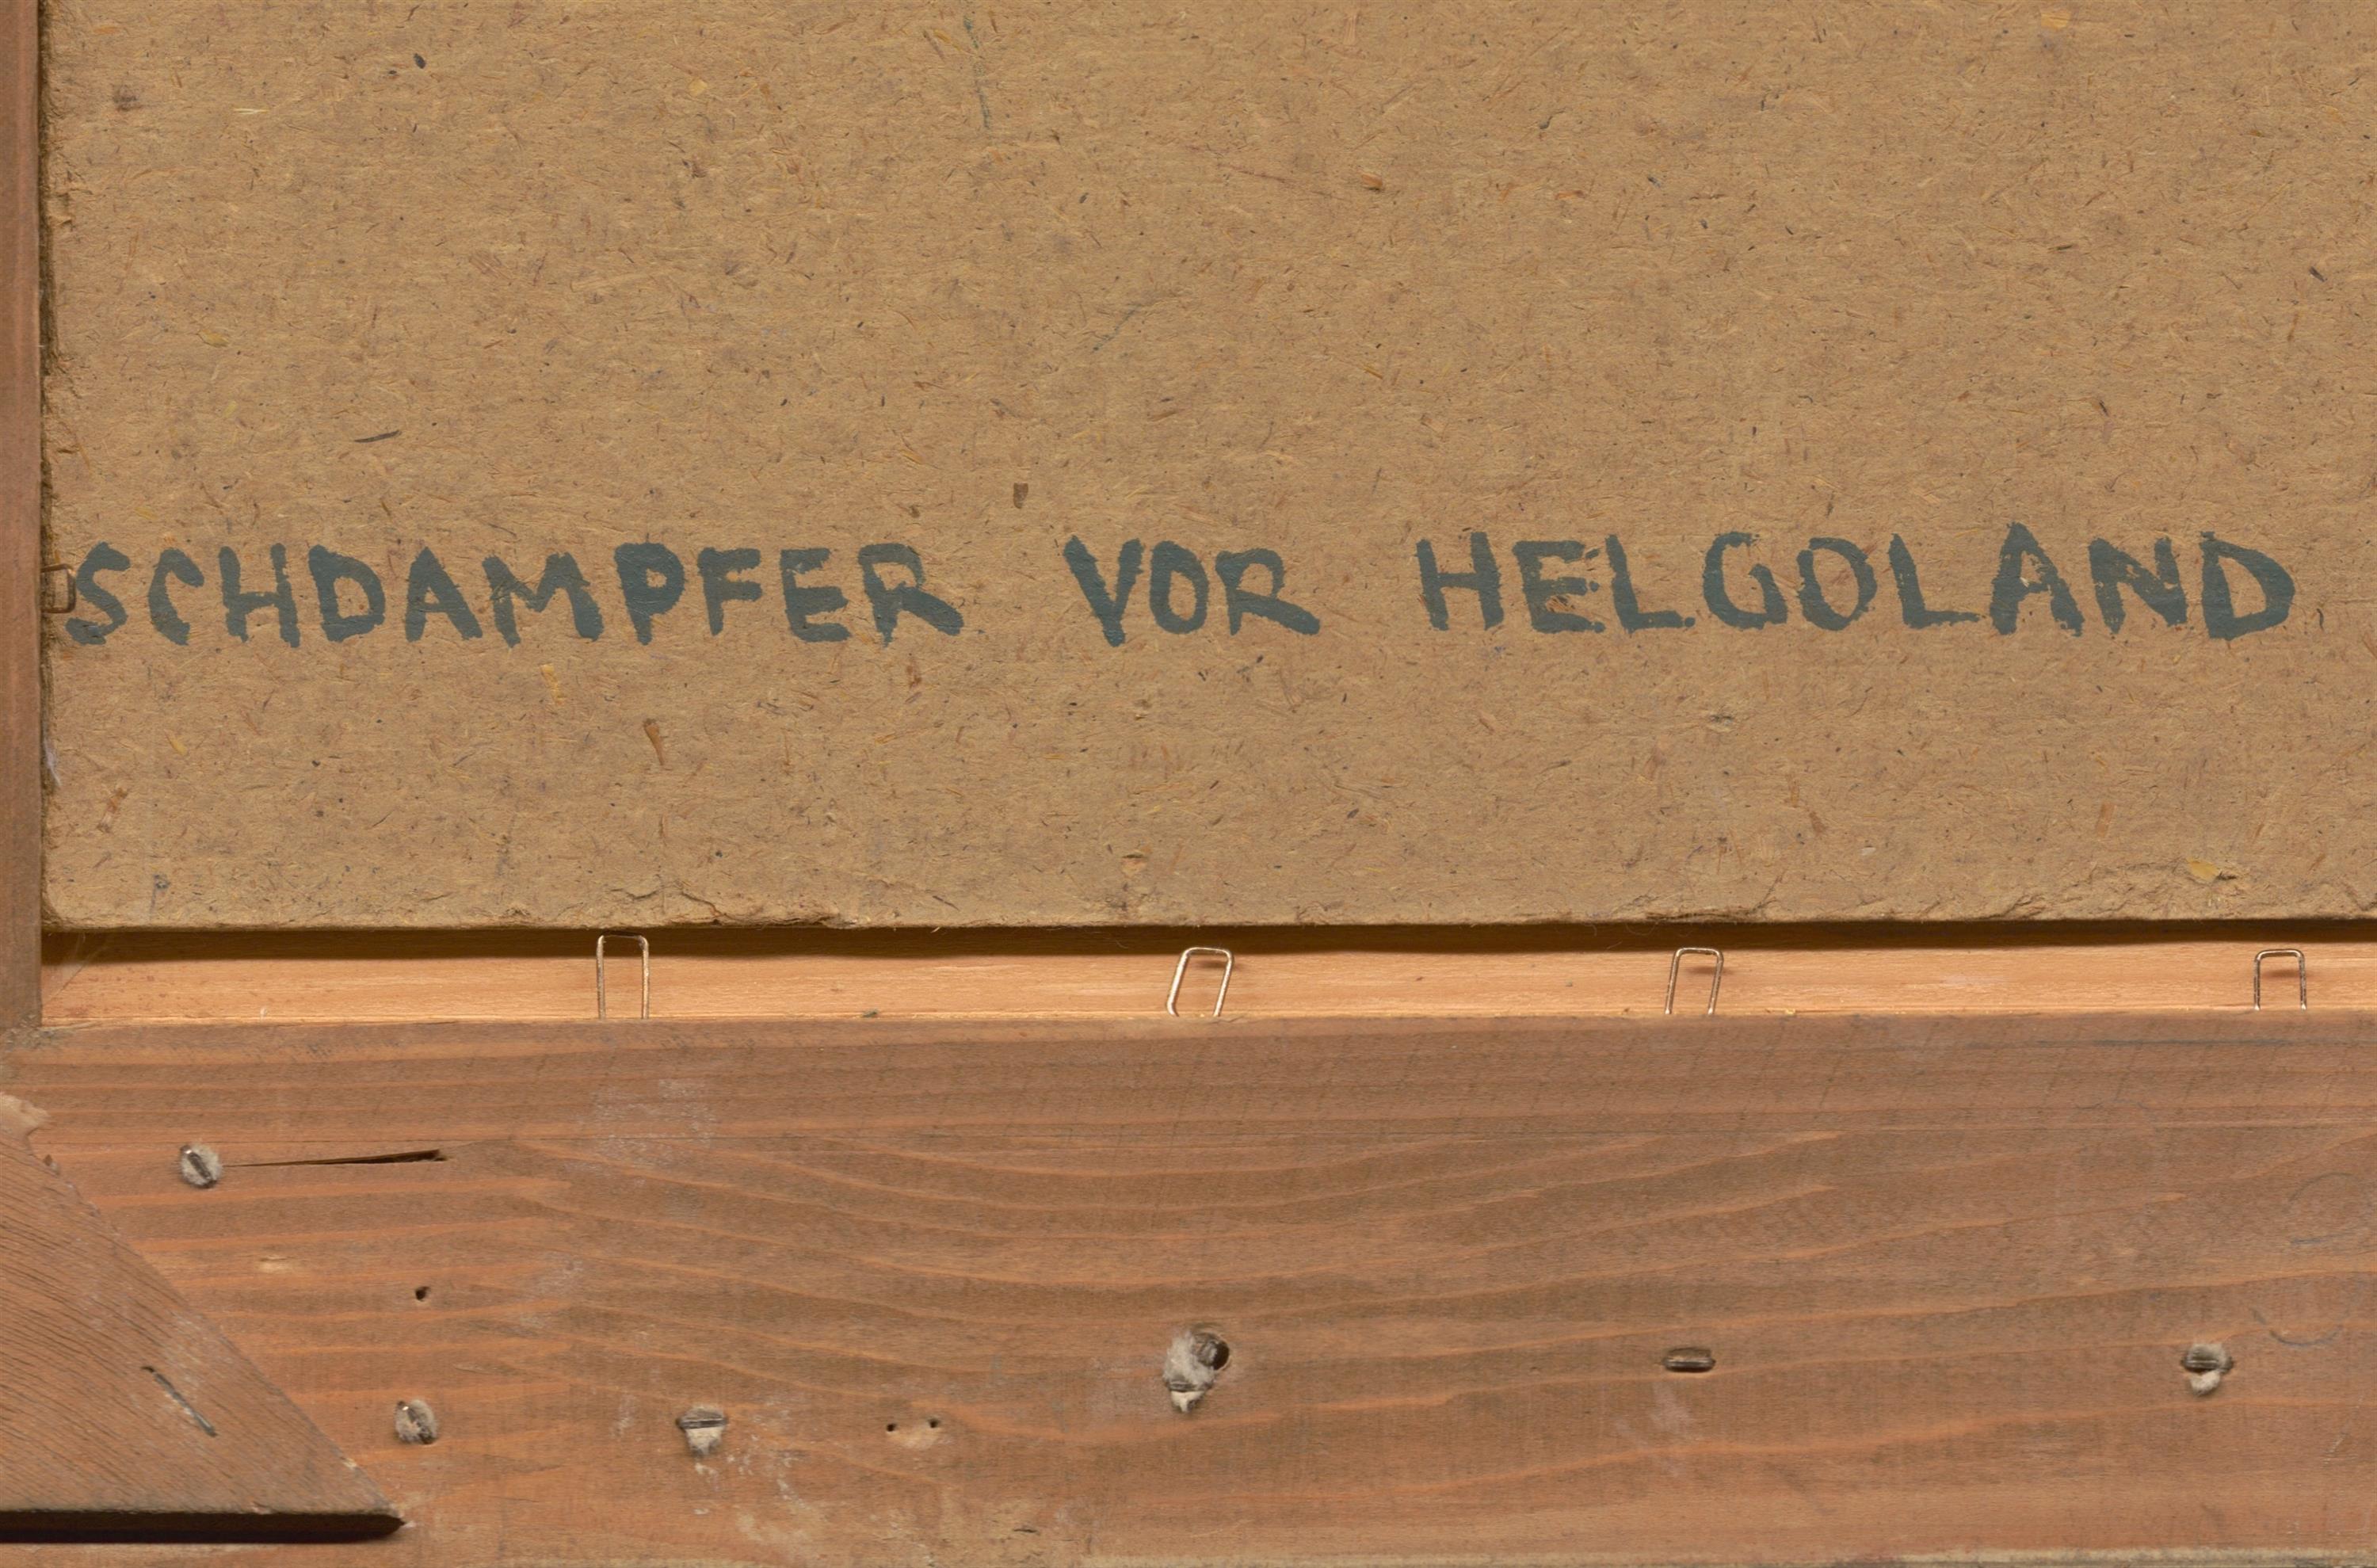 SCHDAMPFER VOR HELGOLAND